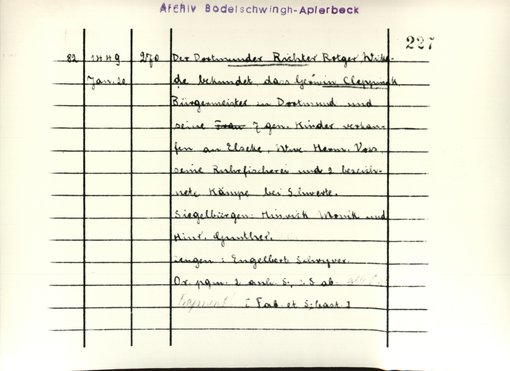 Archiv Bodelschwingh-Aplerbeck
227
82 1449 270 Der Dortmunder Richter Rotger Wicke-
Jan. 20 de bekundet, dass Gerwin Cleppinck
Bürgermeister in Dortmund und
seine Frau 7 gen. Kinder verkau-
fen an Elseke, Wwe. Herm. Vos,
seine Ruhrfischerei und 2 bezeich-
nete Kämpe bei Swerte.
Siegelbürgen: Hinrick Monik und
Hinr. Gunther.
Zeugen: Engelbert Schryver.
Or. pgm. 2 anh. S., : S ab.
fragment [Fab. et Sebast.]